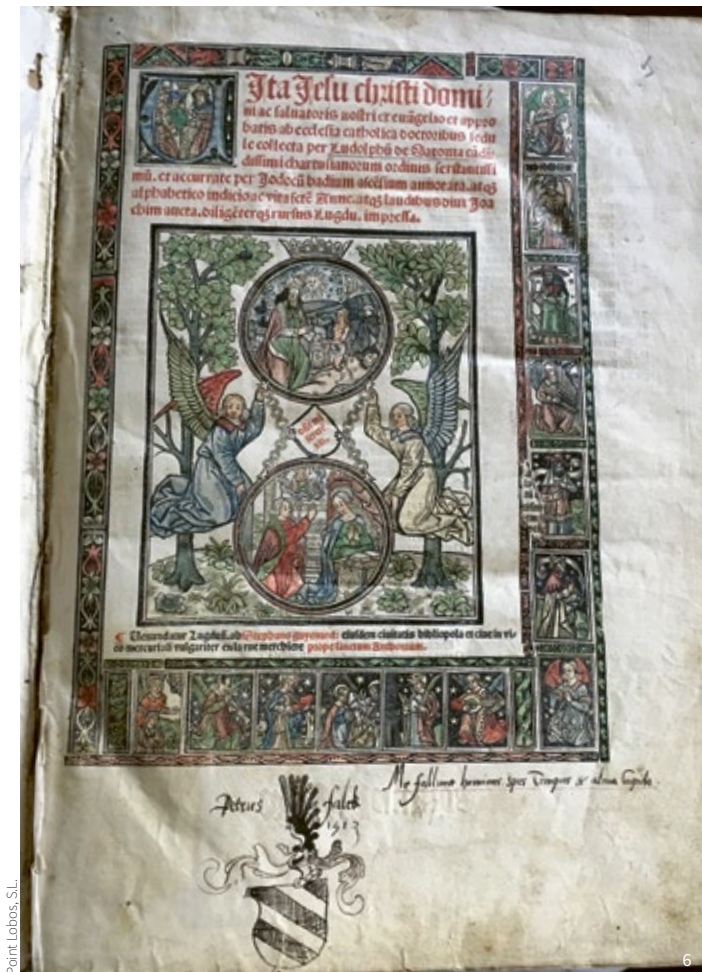 Vita Jesu christi domi⸗
ni ac saluatoris nostri ex euãgelio et appro
batis ab ecclesia catholica doctoribus sedu
le collecta per Ludolphũ de Saxonia
chartusianorum ordinis
mũ. et accurate per Jodocũ badium ascẽsium annotata. atqꝫ
alphabetico indicio ac vita scẽ Anne. atqꝫ laudibus diui Joa
chim aucta. diligẽterqꝫ rursus Lugdu. impressa.
¶ Venundatur ab Stephano gueynard: eiusdem ciuitatis bibliopola et ciue in vi⸗
co mercuriali vulgariter en la rue merchiere prope sanctum Anthonium.
Petrus falck
1513
Me homines spes Tempus & alma
Point Lobos, S.L.
6